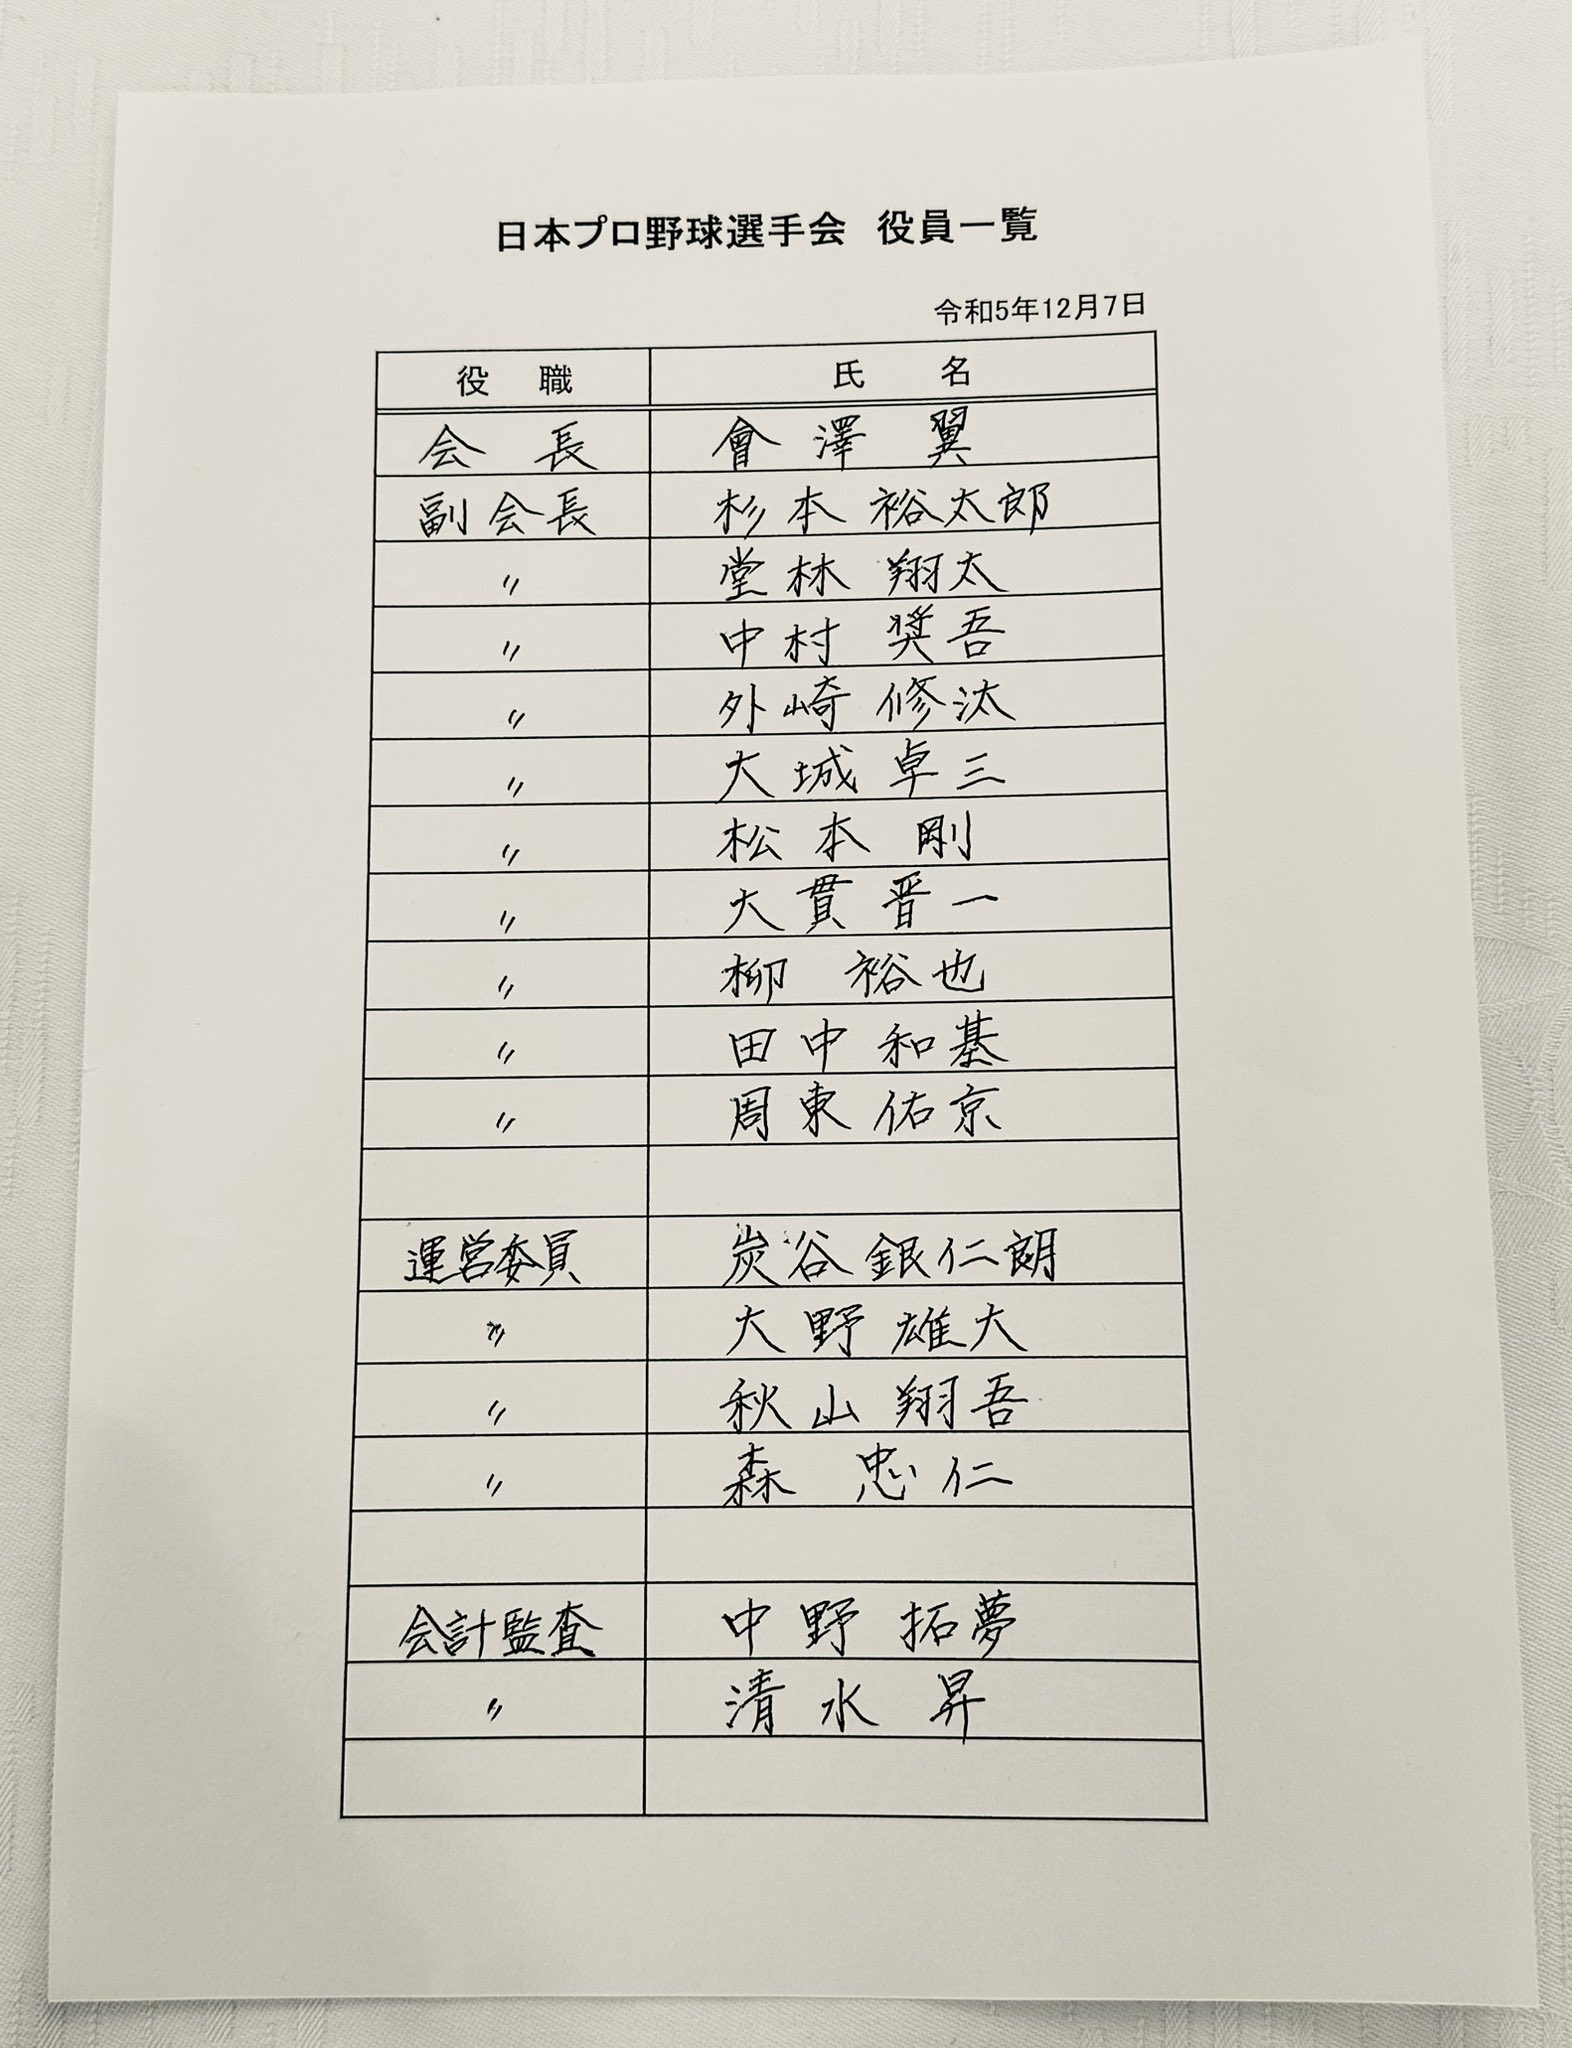 日本プロ野球選手会 役員一覧
令和5年12月7日
役職 氏名
会長 會澤翼
副会長 杉本裕太郎
〃 堂林翔太
〃 中村奨吾
〃 外崎修汰
〃 大城卓三
〃 松本剛
〃 大貫晋一
〃 柳裕也
〃 田中和基
〃 周東佑京
運営委員 炭谷銀仁朗
〃 大野雄大
〃 秋山翔吾
〃 森忠仁
会計監査 中野拓夢
〃 清水昇